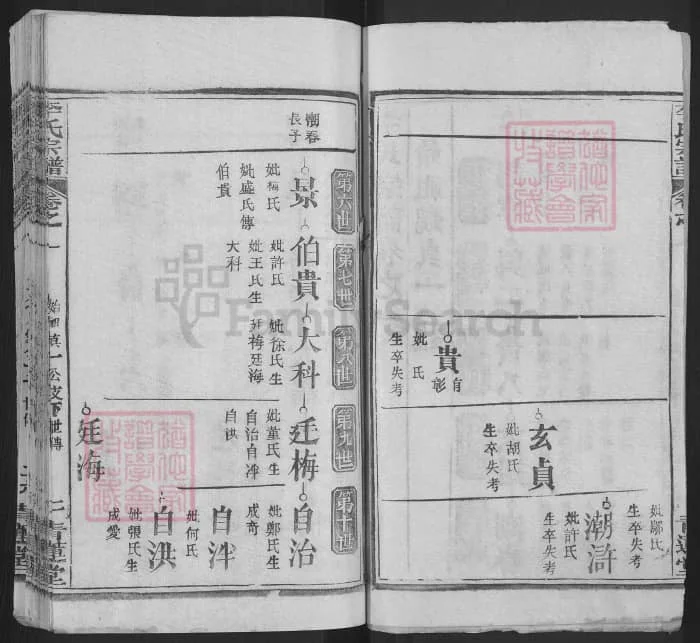 氏宗譜
妣鄢氏
生卒失考
潮滸
妣許氏
生卒失考
玄貞
妣胡氏
生卒失考
貴
有彰
妣 氏
生卒失考
青蓮堂
第六世
第七世
第八世
第九世
第十世
潮春
長子
景
妣梅氏
妣盛氏傳
伯貴
伯貴
妣許氏
妣王氏生
大科
大科
妣徐氏生
廷梅廷海
廷梅
妣董氏生
自治自泮
自洪
自治
妣鄭氏生
成奇
自泮
妣何氏
自洪
妣張氏生
成愛
廷海
李氏宗譜
青蓮堂
FamilySearch